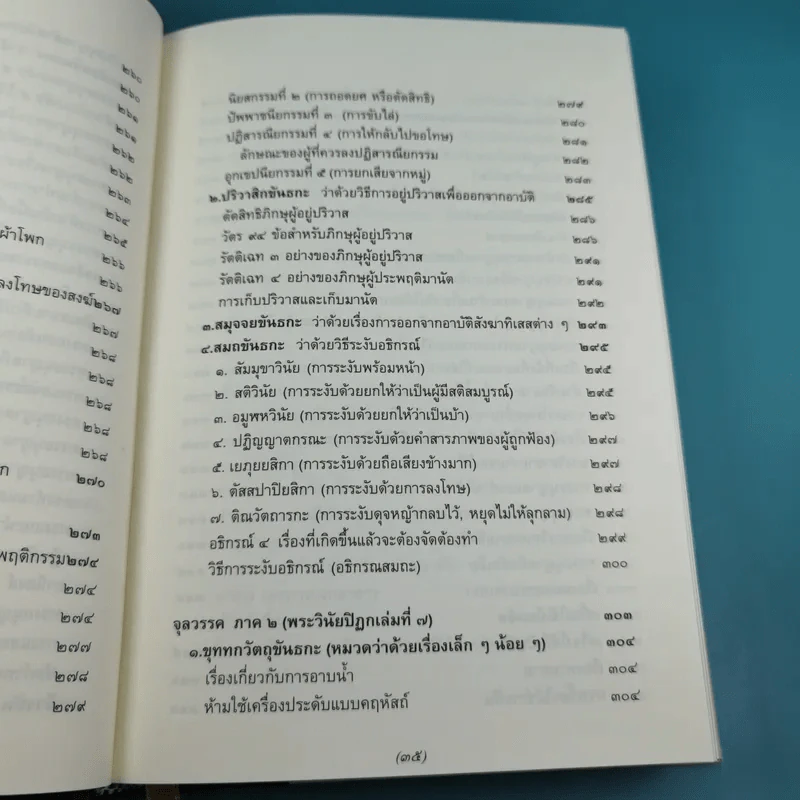 ๒๖๐
๒๖๐
๒๖๑
๒๖๑
๒๖๒
๒๖๒
๒๖๓
๒๖๔
ผ้าโพก ๒๖๕
๒๖๖
๒๖๖
ลงโทษของสงฆ์๒๖๗
๒๖๗
๒๖๘
๒๖๘
๒๖๘
๒๖๘
๒๖๘
ก ๒๗๐
๒๗๓
พฤติกรรม๒๗๔
๒๗๔
๒๗๔
๒๗๗
๒๗๘
๒๗๙
นิยสกรรมที่ ๒ (การถอดยศ หรือตัดสิทธิ) ๒๗๙
ปัพพาชนียกรรมที่ ๓ (การขับไล่) ๒๘๐
ปฏิสารณียกรรมที่ ๔ (การให้กลับไปขอโทษ) ๒๘๑
ลักษณะของผู้ที่ควรลงปฏิสารณียกรรม ๒๘๒
อุกเขปนียกรรมที่ ๕ (การยกเสียจากหมู่) ๒๘๓
๒.ปริวาสิกขันธกะ ว่าด้วยวิธีการอยู่ปริวาสเพื่อออกจากอาบัติ ๒๘๕
ตัดสิทธิภิกษุผู้อยู่ปริวาส ๒๘๖
วัตร ๙๔ ข้อสำหรับภิกษุผู้อยู่ปริวาส ๒๘๖
รัตติเฉท ๓ อย่างของภิกษุผู้อยู่ปริวาส ๒๙๑
รัตติเฉท ๔ อย่างของภิกษุผู้ประพฤติมานัต ๒๙๑
การเก็บปริวาสและเก็บมานัต ๒๙๒
๓.สมุจจยขันธกะ ว่าด้วยเรื่องการออกจากอาบัติสังฆาทิเสสต่าง ๆ ๒๙๓
๔.สมถขันธกะ ว่าด้วยวิธีระงับอธิกรณ์ ๒๙๕
๑. สัมมุขาวินัย (การระงับพร้อมหน้า)
๒. สติวินัย (การระงับด้วยยกให้ว่าเป็นผู้มีสติสมบูรณ์) ๒๙๕
๓. อมูฬหวินัย (การระงับด้วยยกให้ว่าเป็นบ้า) ๒๙๖
๔. ปฏิญญาตกรณะ (การระงับด้วยคำสารภาพของผู้ถูกฟ้อง) ๒๙๗
๕. เยภุยยสิกา (การระงับด้วยถือเสียงข้างมาก) ๒๙๗
๖. ตัสสปาปิยสิกา (การระงับด้วยการลงโทษ) ๒๙๘
๗. ติณวัตถารกะ (การระงับดุจหญ้ากลบไว้, หยุดไม่ให้ลุกลาม) ๒๙๘
อธิกรณ์ ๔ เรื่องที่เกิดขึ้นแล้วจะต้องจัดต้องทำ ๒๙๙
วิธีการระงับอธิกรณ์ (อธิกรณสมถะ) ๓๐๐
จุลวรรค ภาค ๒ (พระวินัยปิฎกเล่มที่ ๗) ๓๐๓
๑.ขุททกวัตถุขันธกะ (หมวดว่าด้วยเรื่องเล็ก ๆ น้อย ๆ) ๓๐๔
เรื่องเกี่ยวกับการอาบน้ำ ๓๐๔
ห้ามใช้เครื่องประดับแบบคฤหัสถ์ ๓๐๔
(๓๕)